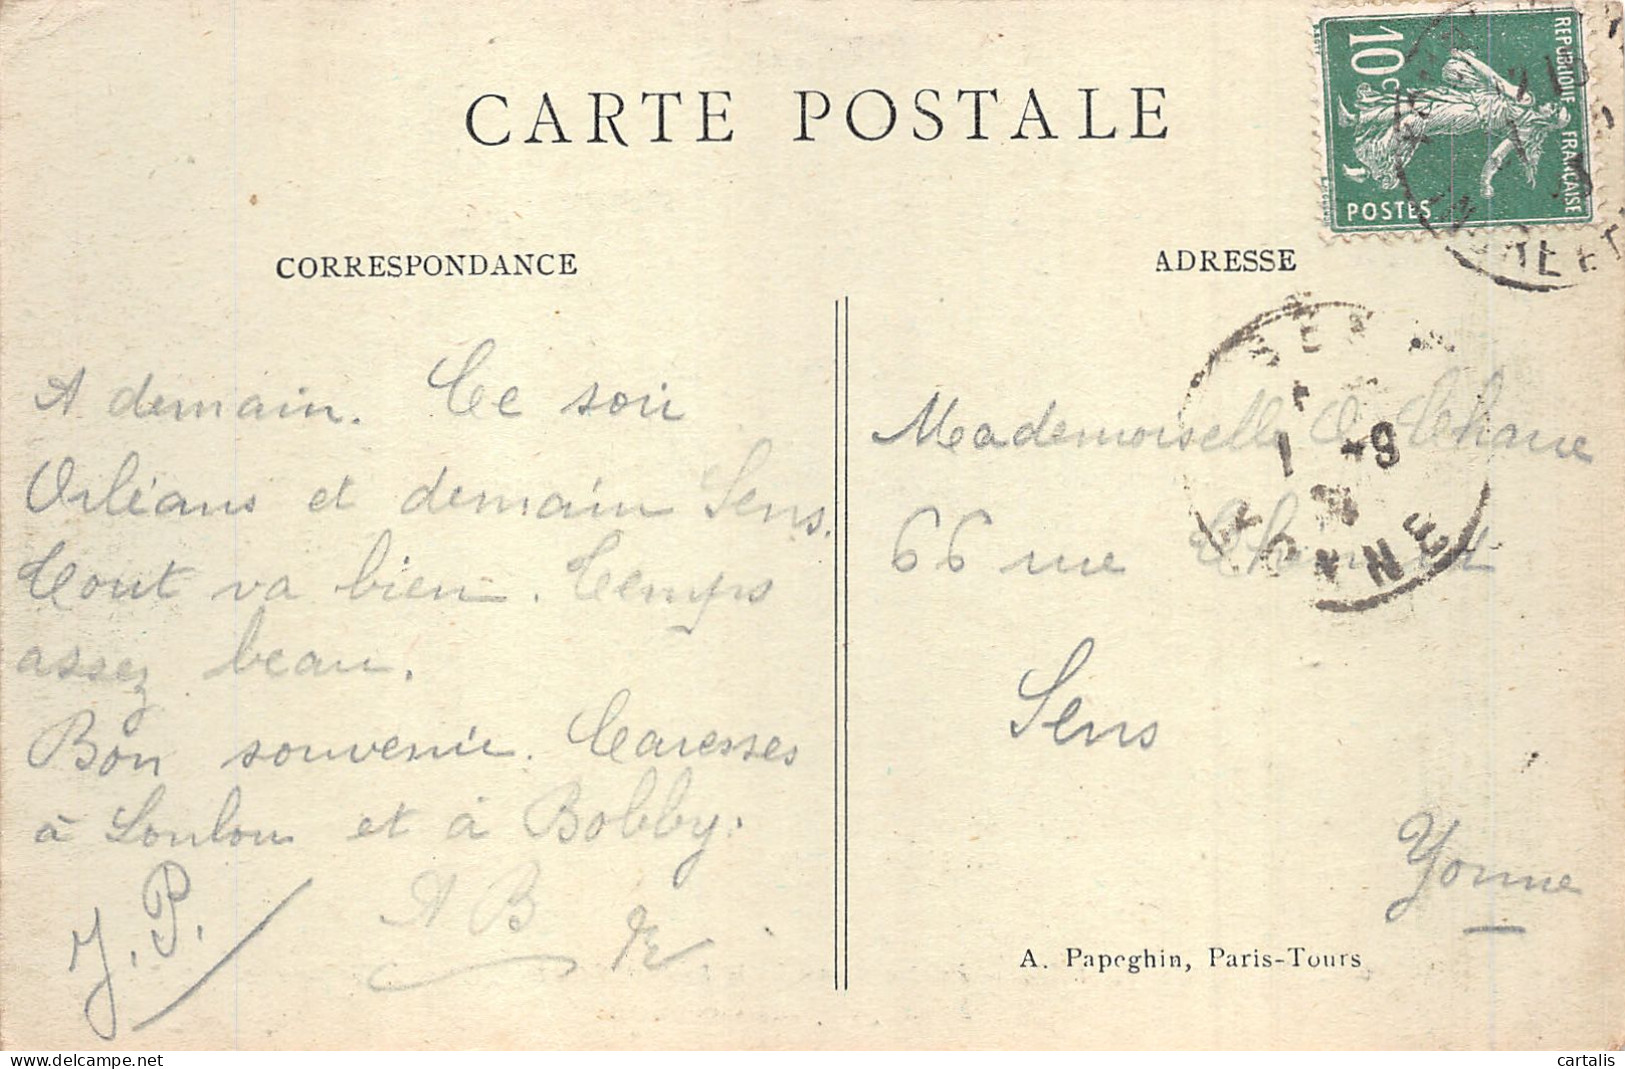 CARTE POSTALE
REPUBLIQUE FRANÇAISE
10c
POSTES
INDRE ET
CORRESPONDANCE
A demain. Ce soir
Orléans et demain Sens.
Tout va bien. Temps
assez beau.
Bon souvenir. Caresses
à Loulou et à Bobby.
J.P.
AB
ADRESSE
SENS
1 -9
YONNE
Mademoiselle
66 rue
Sens
Yonne
A. Papeghin, Paris-Tours
delcampe.net
cartalis